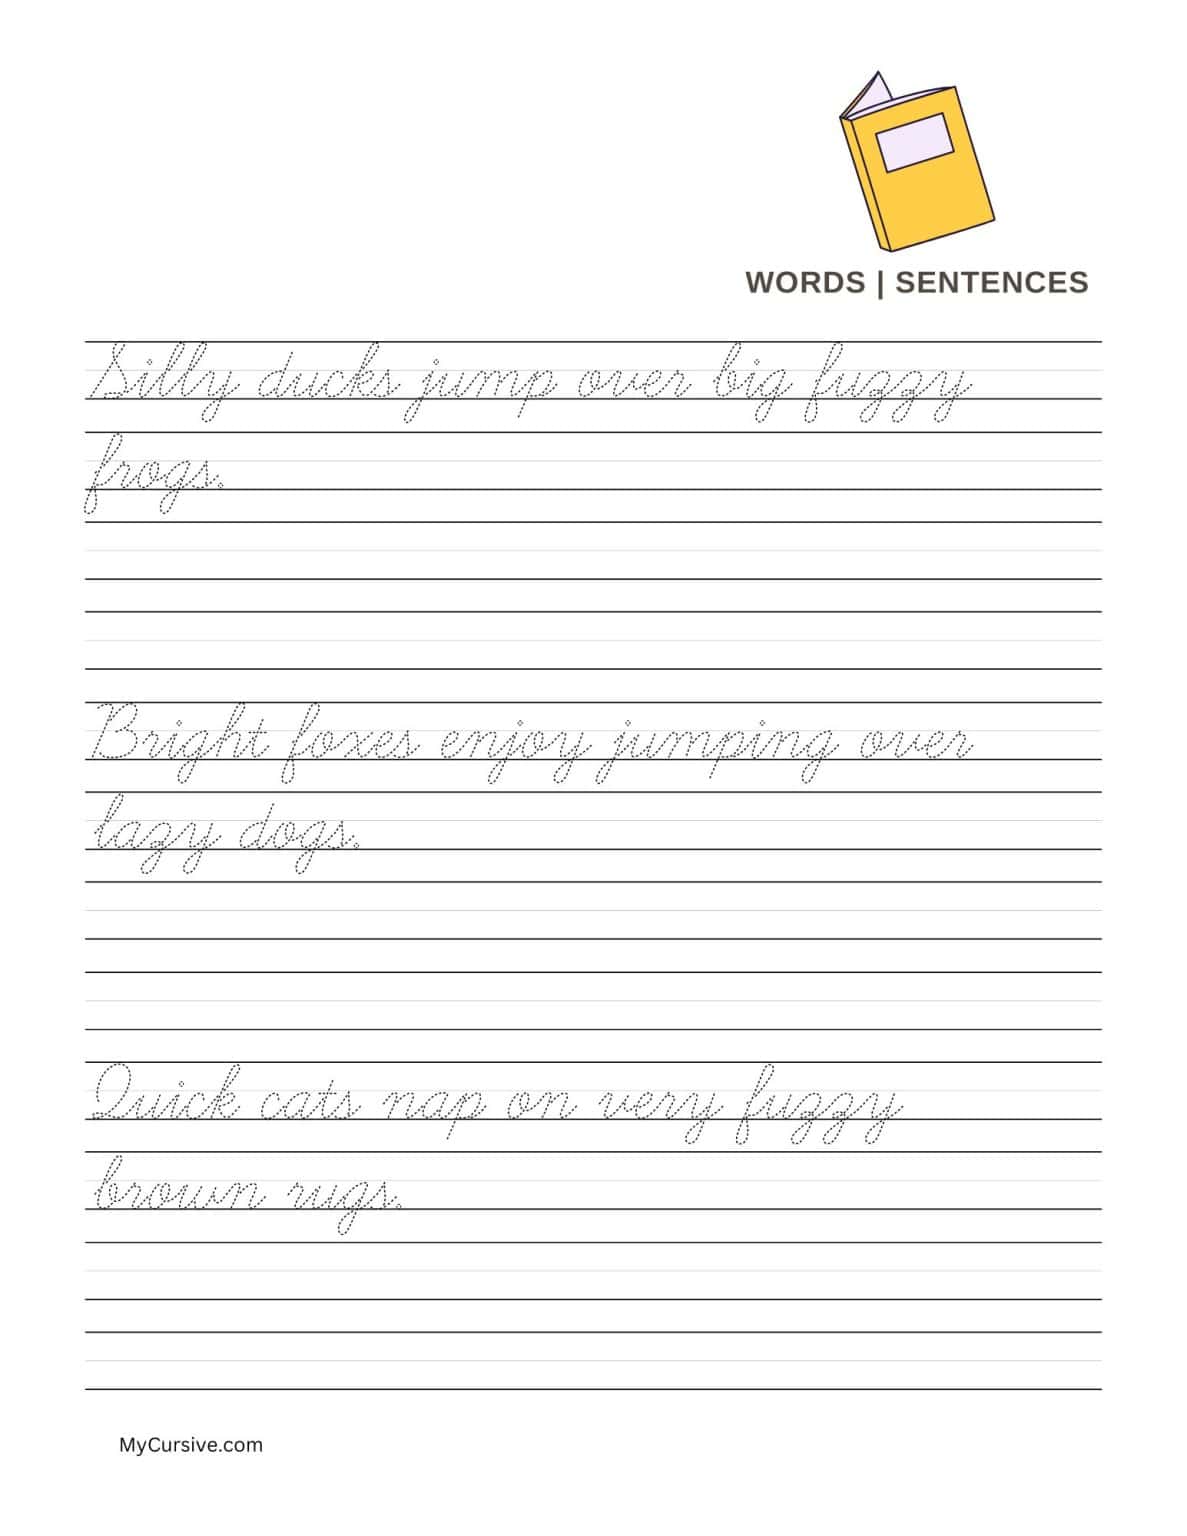 WORDS | SENTENCES
Silly ducks jump over big fuzzy
frogs.
Bright foxes enjoy jumping over
lazy dogs.
Quick cats nap on very fuzzy
brown rugs.
MyCursive.com